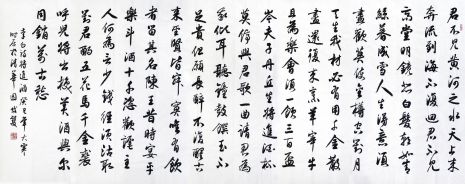 君不見黃河之水天上來
奔流到海不復回君不見
高堂明鏡悲白髮朝如青
絲暮成雪人生得意須
盡歡莫使金樽空對月
天生我材必有用千金散
盡還復來烹羊宰牛
且為樂會須一飲三百盃
岑夫子丹丘生將進酒杯
莫停與君歌一曲請君為
我傾耳聽鐘鼓饌玉不
足貴但願長醉不復醒古
來聖賢皆寂寞惟有飲
者留其名陳王昔時宴平
樂斗酒十千恣歡謔主
人何為言少錢徑須沽取
對君酌五花馬千金裘
呼兒將出換美酒與爾
同銷萬古愁
李白詩將進酒癸巳年大寒
清華園